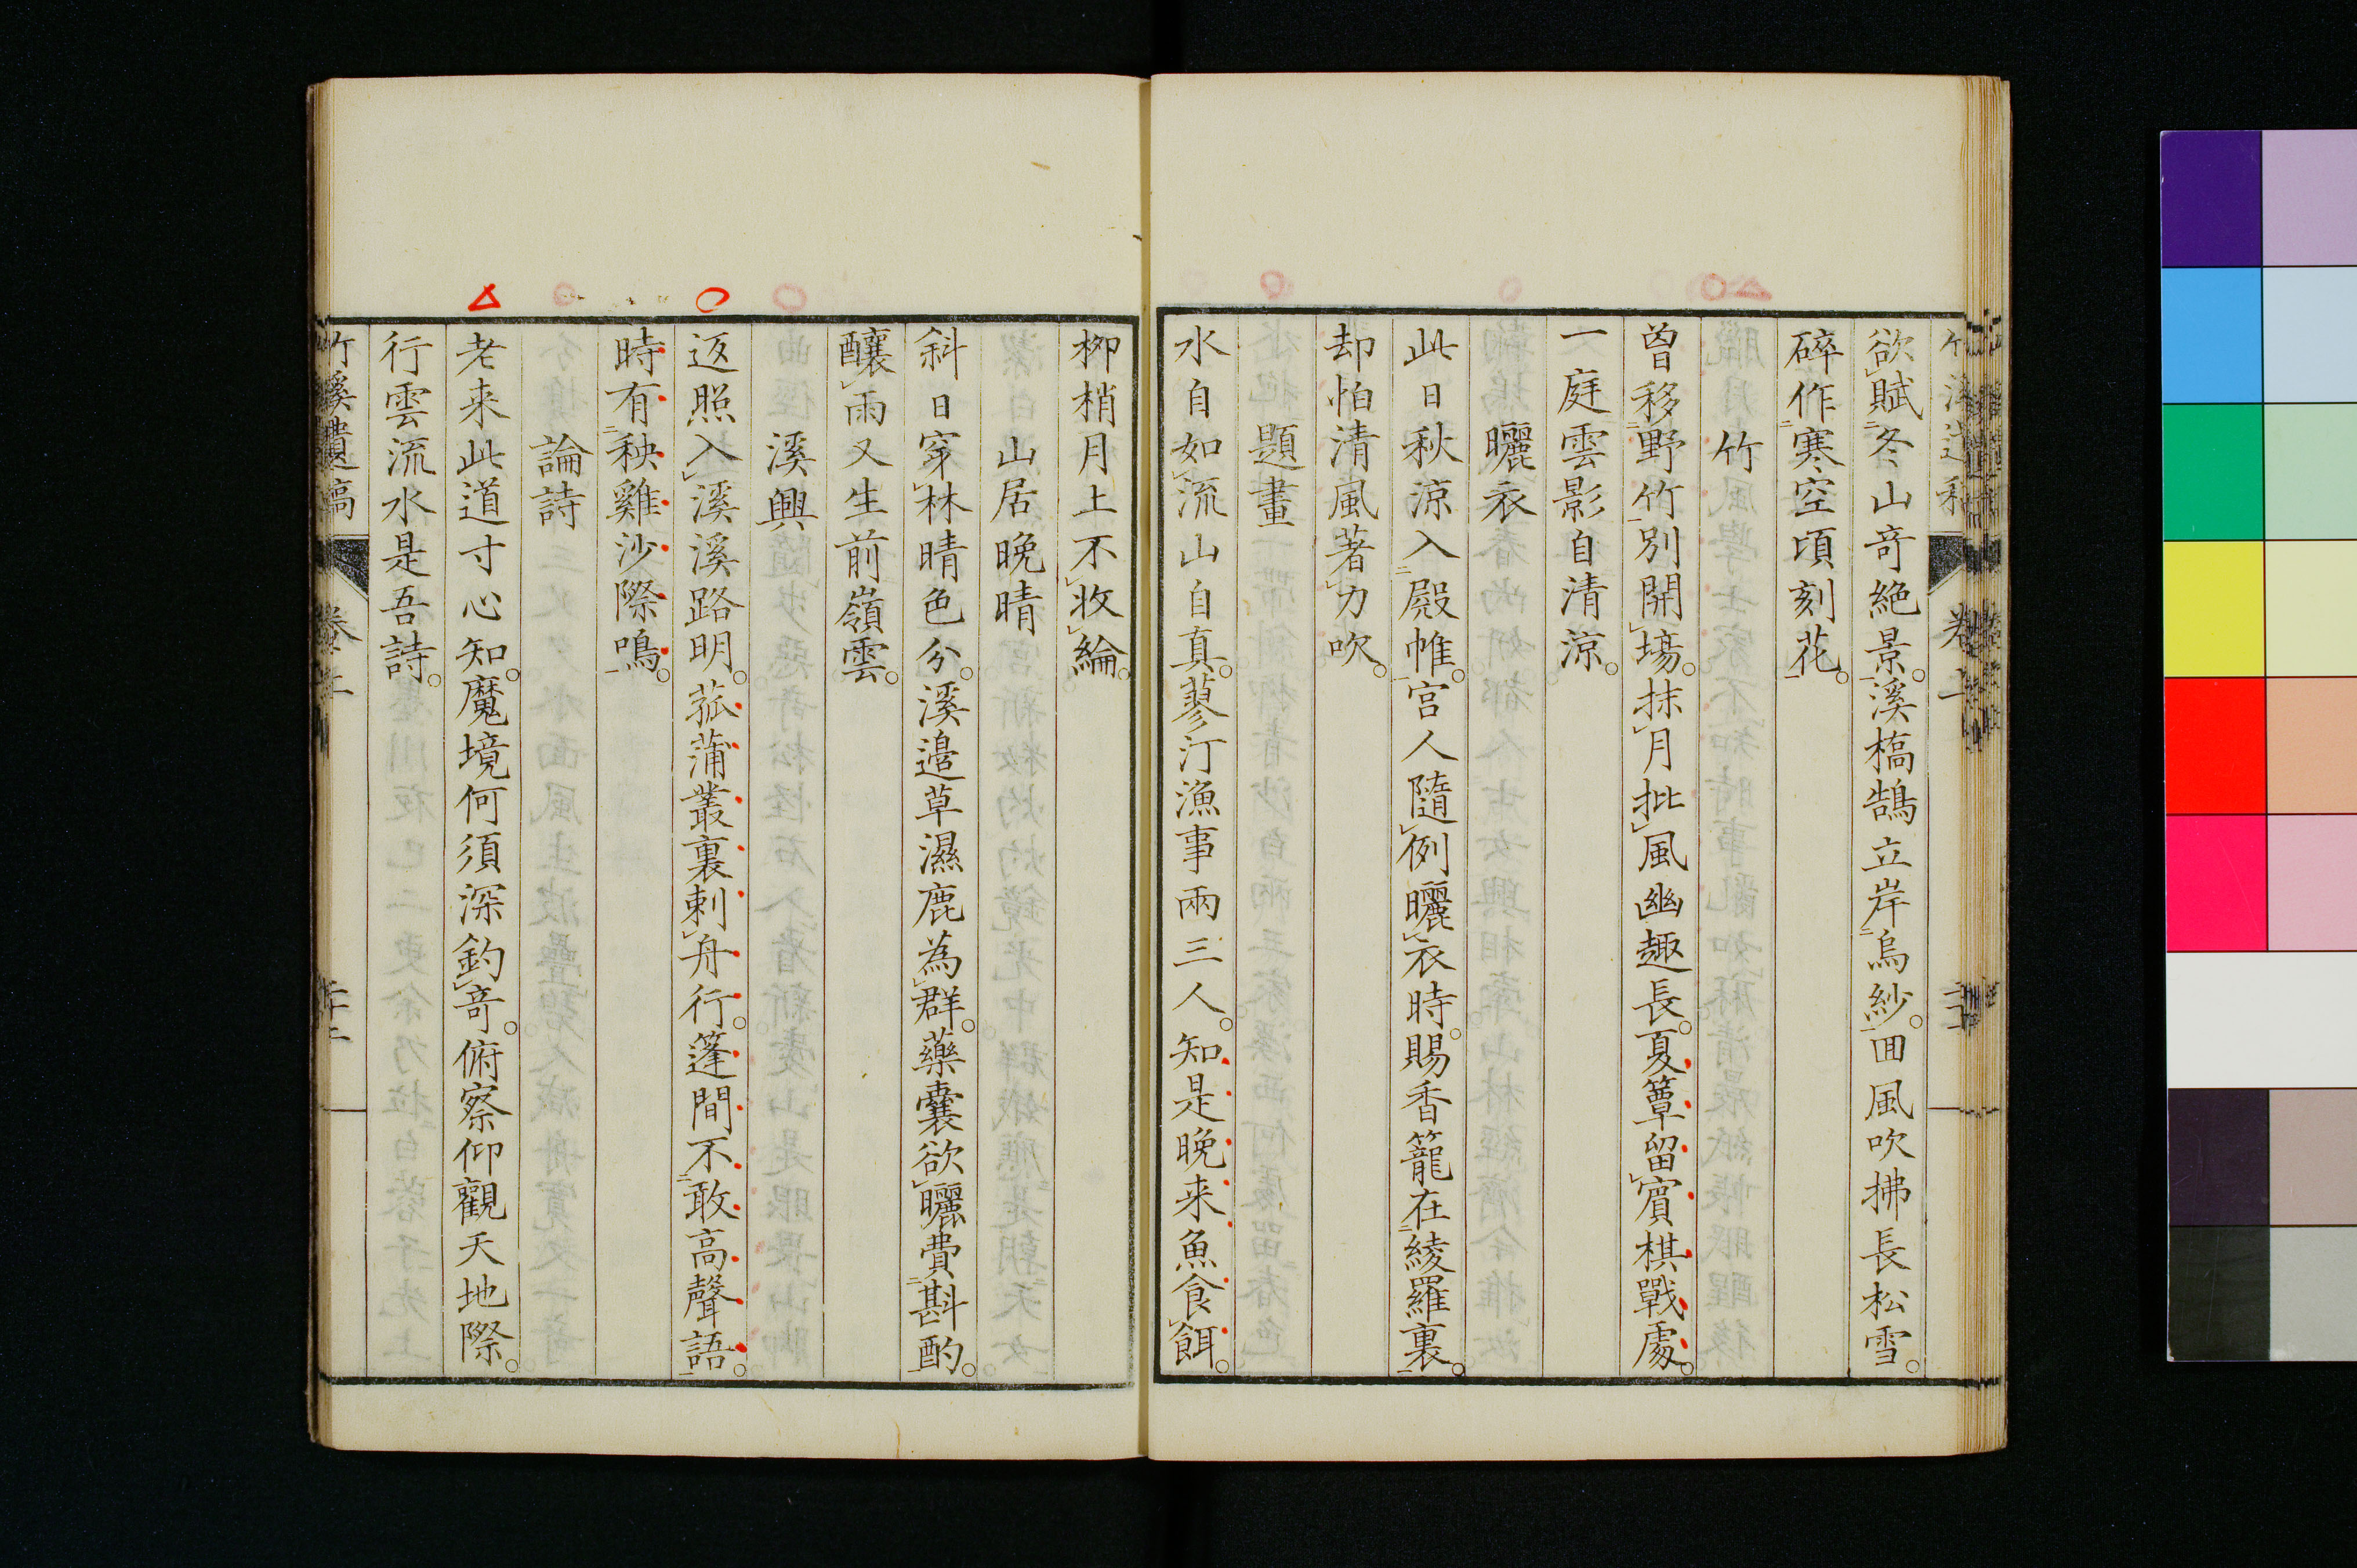 欲賦冬山奇絕景。溪槁鵠立岸烏紗。囬風吹拂長松雪。
碎作寒空頃刻花。
竹
曾移野竹別開塲。抹月批風幽趣長。夏簟留賓棋戰處。
一庭雲影自清涼。
曬衣
此日秋涼入殿帷。宮人隨例曬衣時。賜香籠在綾羅裏。
却怕清風著力吹。
題畫
水自如流山自真。蓼汀漁事兩三人。知是晚来魚食餌。
柳梢月上不收綸。
山居晚晴
斜日穿林晴色分。溪邉草濕鹿為群。藥囊欲曬費斟酌。
釀雨又生前嶺雲。
溪興
返照入溪溪路明。菰蒲叢裏刺舟行。篷間不敢高聲語。
時有秧雞沙際鳴。
論詩
老来此道寸心知。魔境何須深釣奇。俯察仰觀天地際。
行雲流水是吾詩。
竹溪遺稿